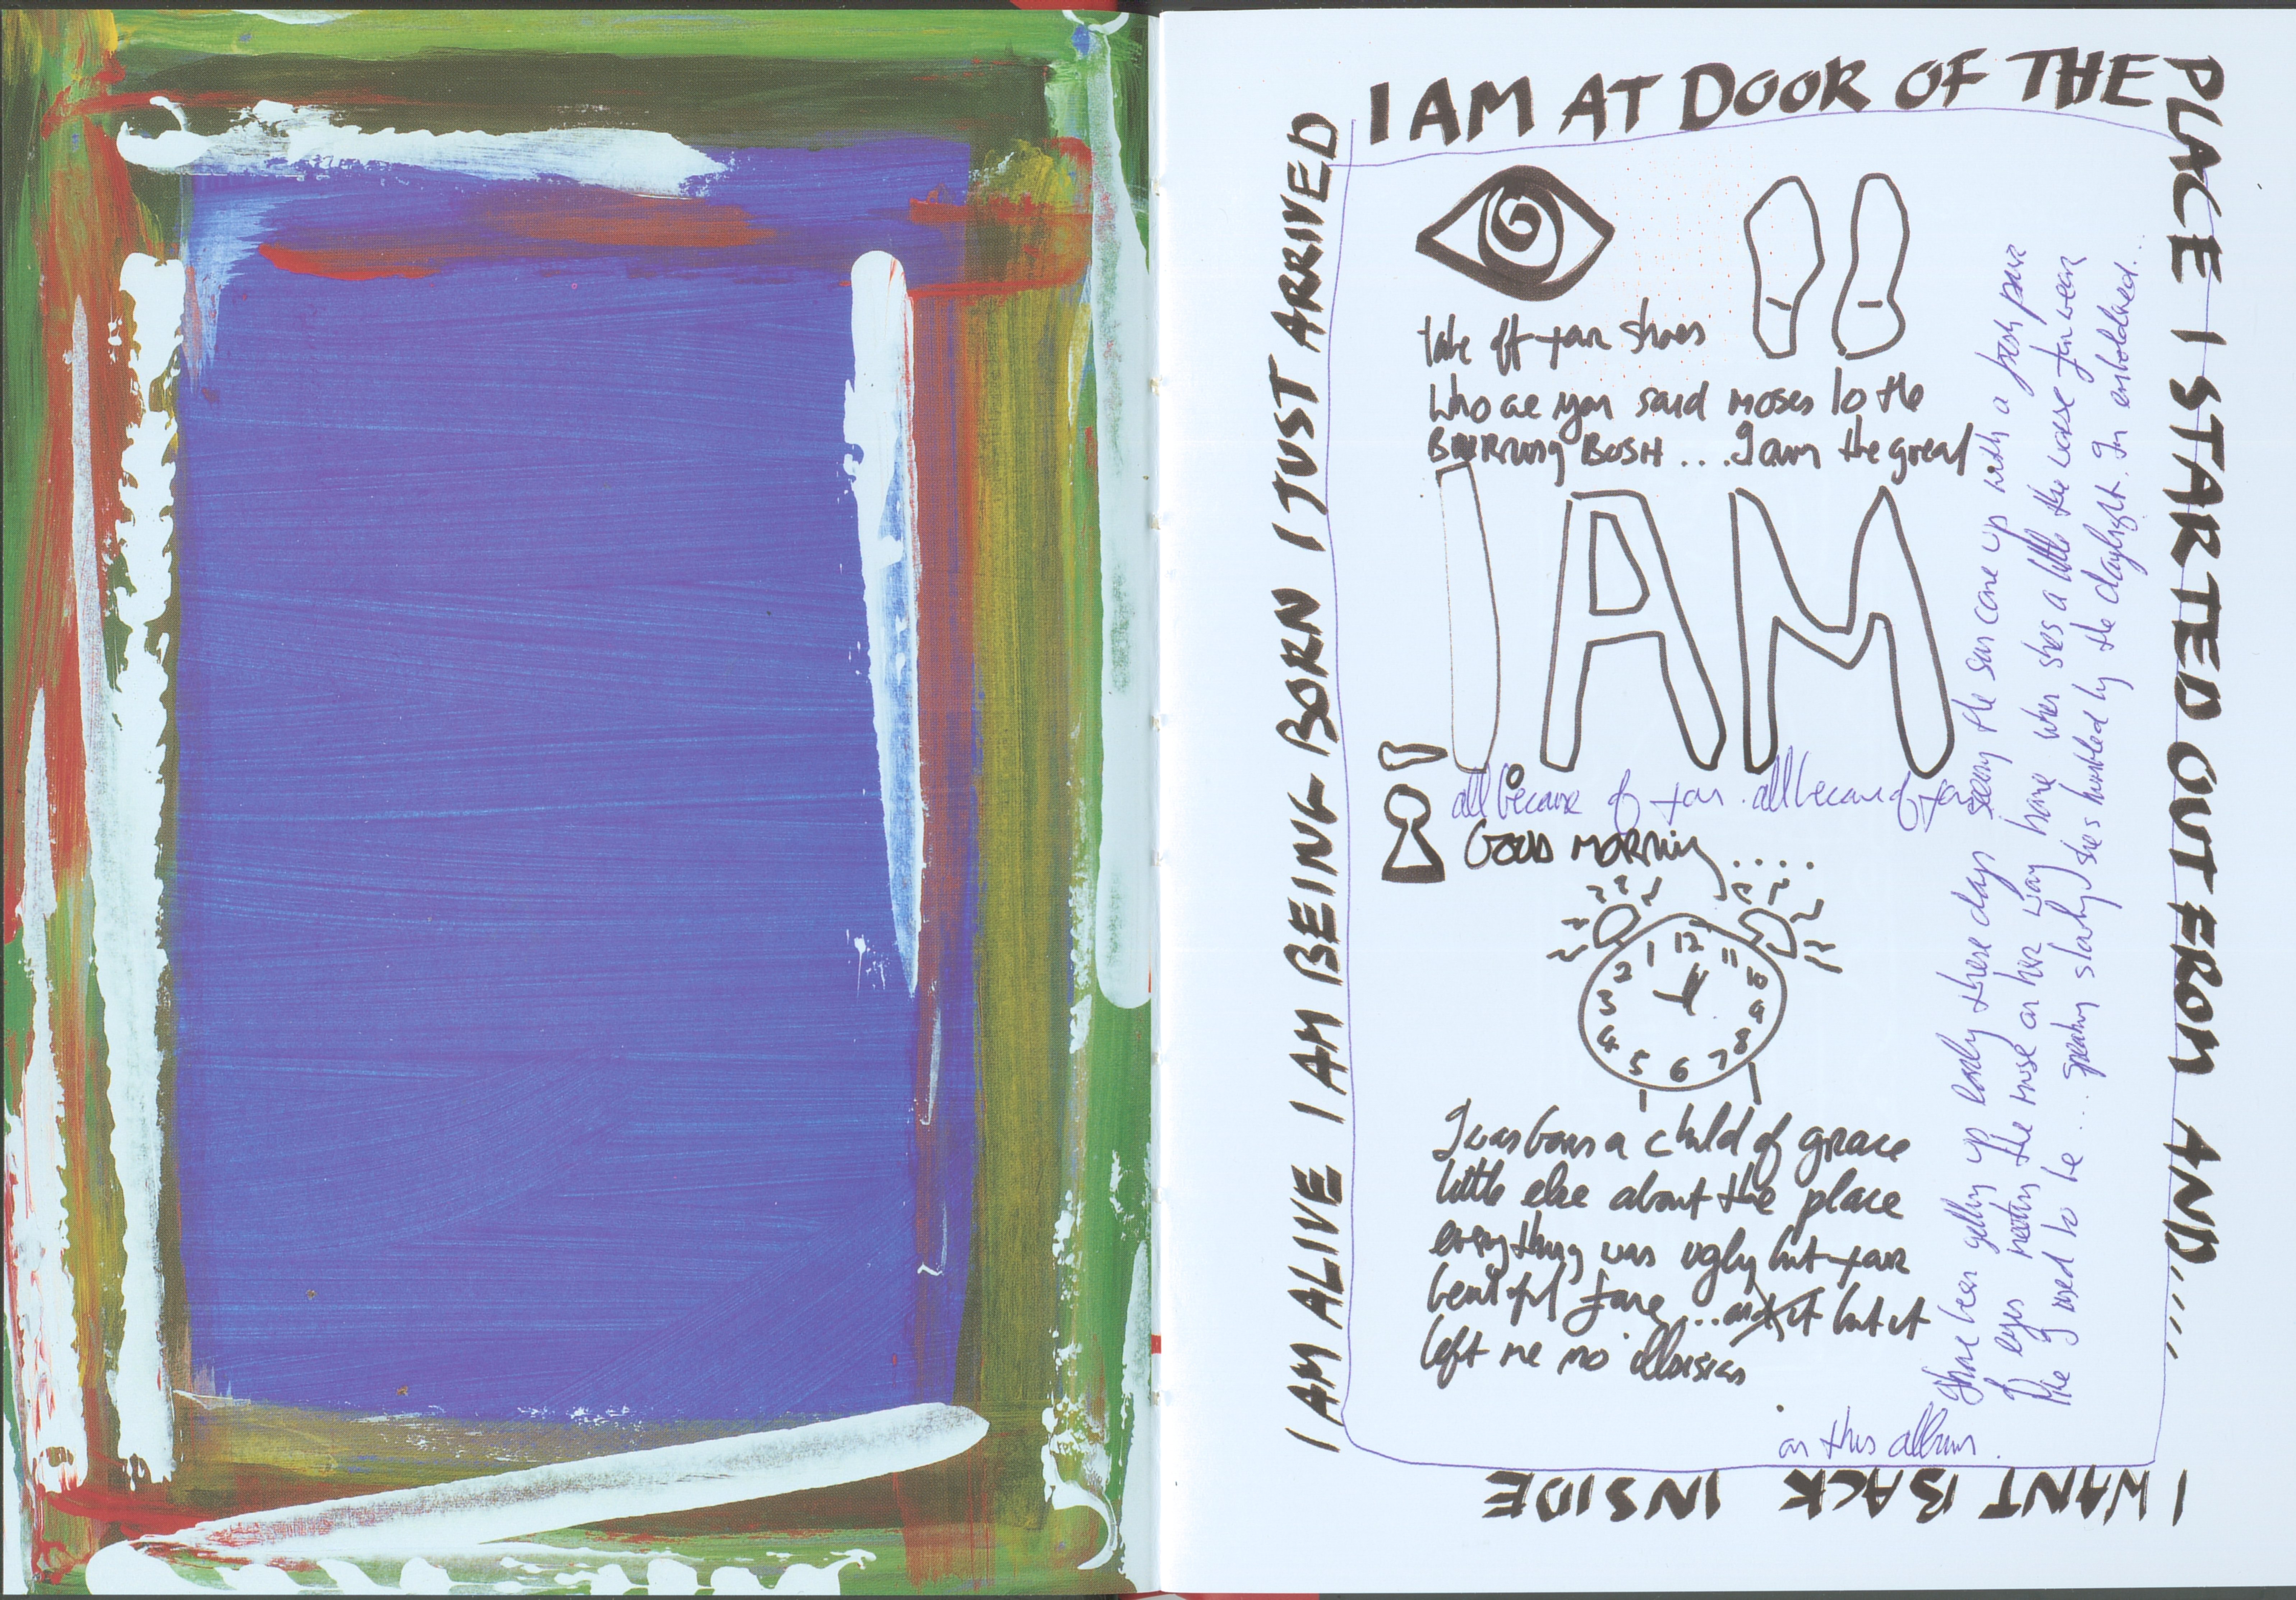 I AM ALIVE I AM BEING BORN I JUST ARRIVED
I AM AT DOOR OF THE
PLACE I STARTED OUT FROM AND.....
I WANT BACK INSIDE
take off your shoes
Who are you said moses to the
BURNING BUSH... I am the great
I AM
all because of you. all because of you
GOOD MORNING....
12
11
10
9
8
7
6
5
4
3
2
1
I was born a child of grace
little else about the place
everything was ugly but your
beautiful face... and it but it
left me no illusions
I have been getting up early these days seeing the sun come up with a fresh pair
of eyes meeting the muse on her way home when shes a little the worse for wear
like I used to be.... speaking slowly shes humbled by the daylight. Im emboldened...
on this album.